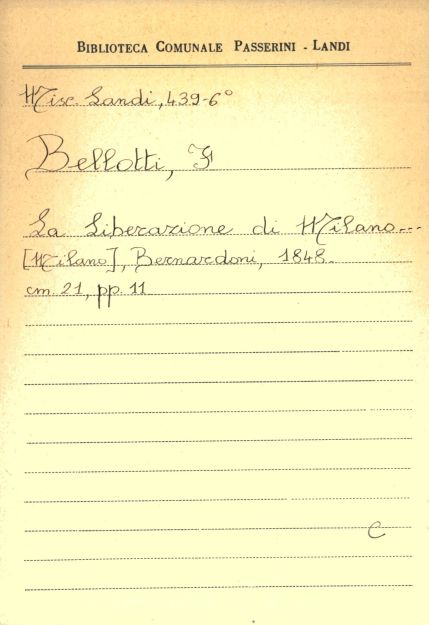 BIBLIOTECA COMUNALE PASSERINI - LANDI
Misc. Landi, 439-6°
Bellotti, F
La Liberazione di Milano...
[Milano], Bernardoni, 1848.
cm. 21, pp. 11
C